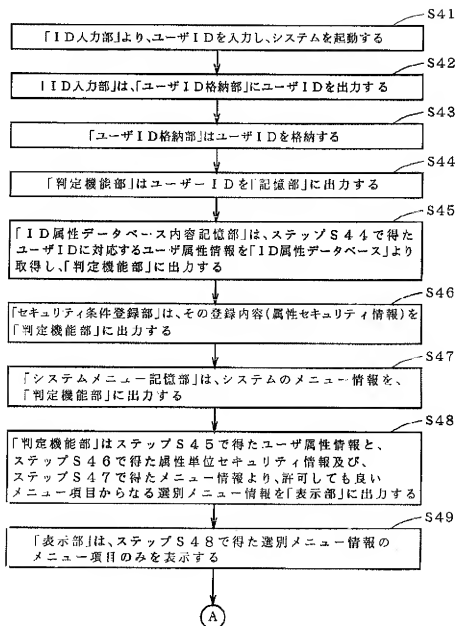 S41
「ID入力部」より、ユーザIDを入力し、システムを起動する
S42
「ID入力部」は、「ユーザID格納部」にユーザIDを出力する
S43
「ユーザID格納部」はユーザIDを格納する
S44
「判定機能部」はユーザーIDを「記憶部」に出力する
S45
「ID属性データベース内容記憶部」は、ステップS44で得た
ユーザIDに対応するユーザ属性情報を「ID属性データベース」より
取得し、「判定機能部」に出力する
S46
「セキュリティ条件登録部」は、その登録内容(属性セキュリティ情報)を
「判定機能部」に出力する
S47
「システムメニュー記憶部」は、システムのメニュー情報を、
「判定機能部」に出力する
S48
「判定機能部」はステップS45で得たユーザ属性情報と、
ステップS46で得た属性単位セキュリティ情報及び、
ステップS47で得たメニュー情報より、許可しても良い
メニュー項目からなる選別メニュー情報を「表示部」に出力する
S49
「表示部」は、ステップS48で得た選別メニュー情報の
メニュー項目のみを表示する
A